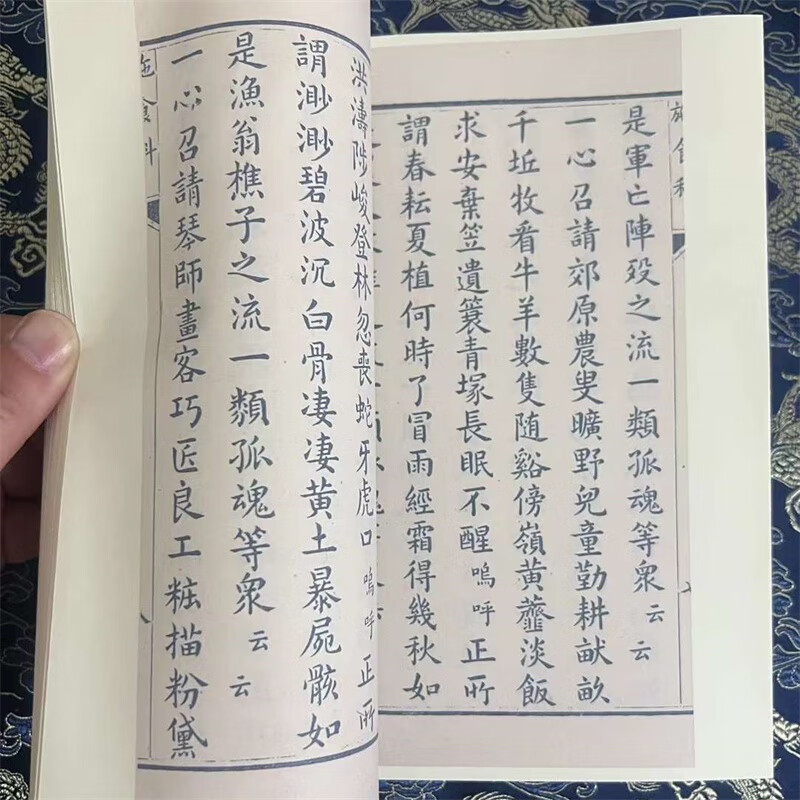 施食科
是軍亡陣殁之流一類孤魂等衆云云
一心召請郊原農叟曠野兒童勤耕畎畝
千坵牧看牛羊數隻随谿傍嶺黃虀淡飯
求安棄笠遺簑青塚長眠不醒嗚呼正所
謂春耘夏植何時了冒雨經霜得幾秋如
洪濤陟峻登林忽喪蛇牙虎口嗚呼正所
謂渺渺碧波沉白骨凄凄黃土暴屍骸如
是漁翁樵子之流一類孤魂等衆云云
一心召請琴師畫客巧匠良工粧描粉黛
施食科
八